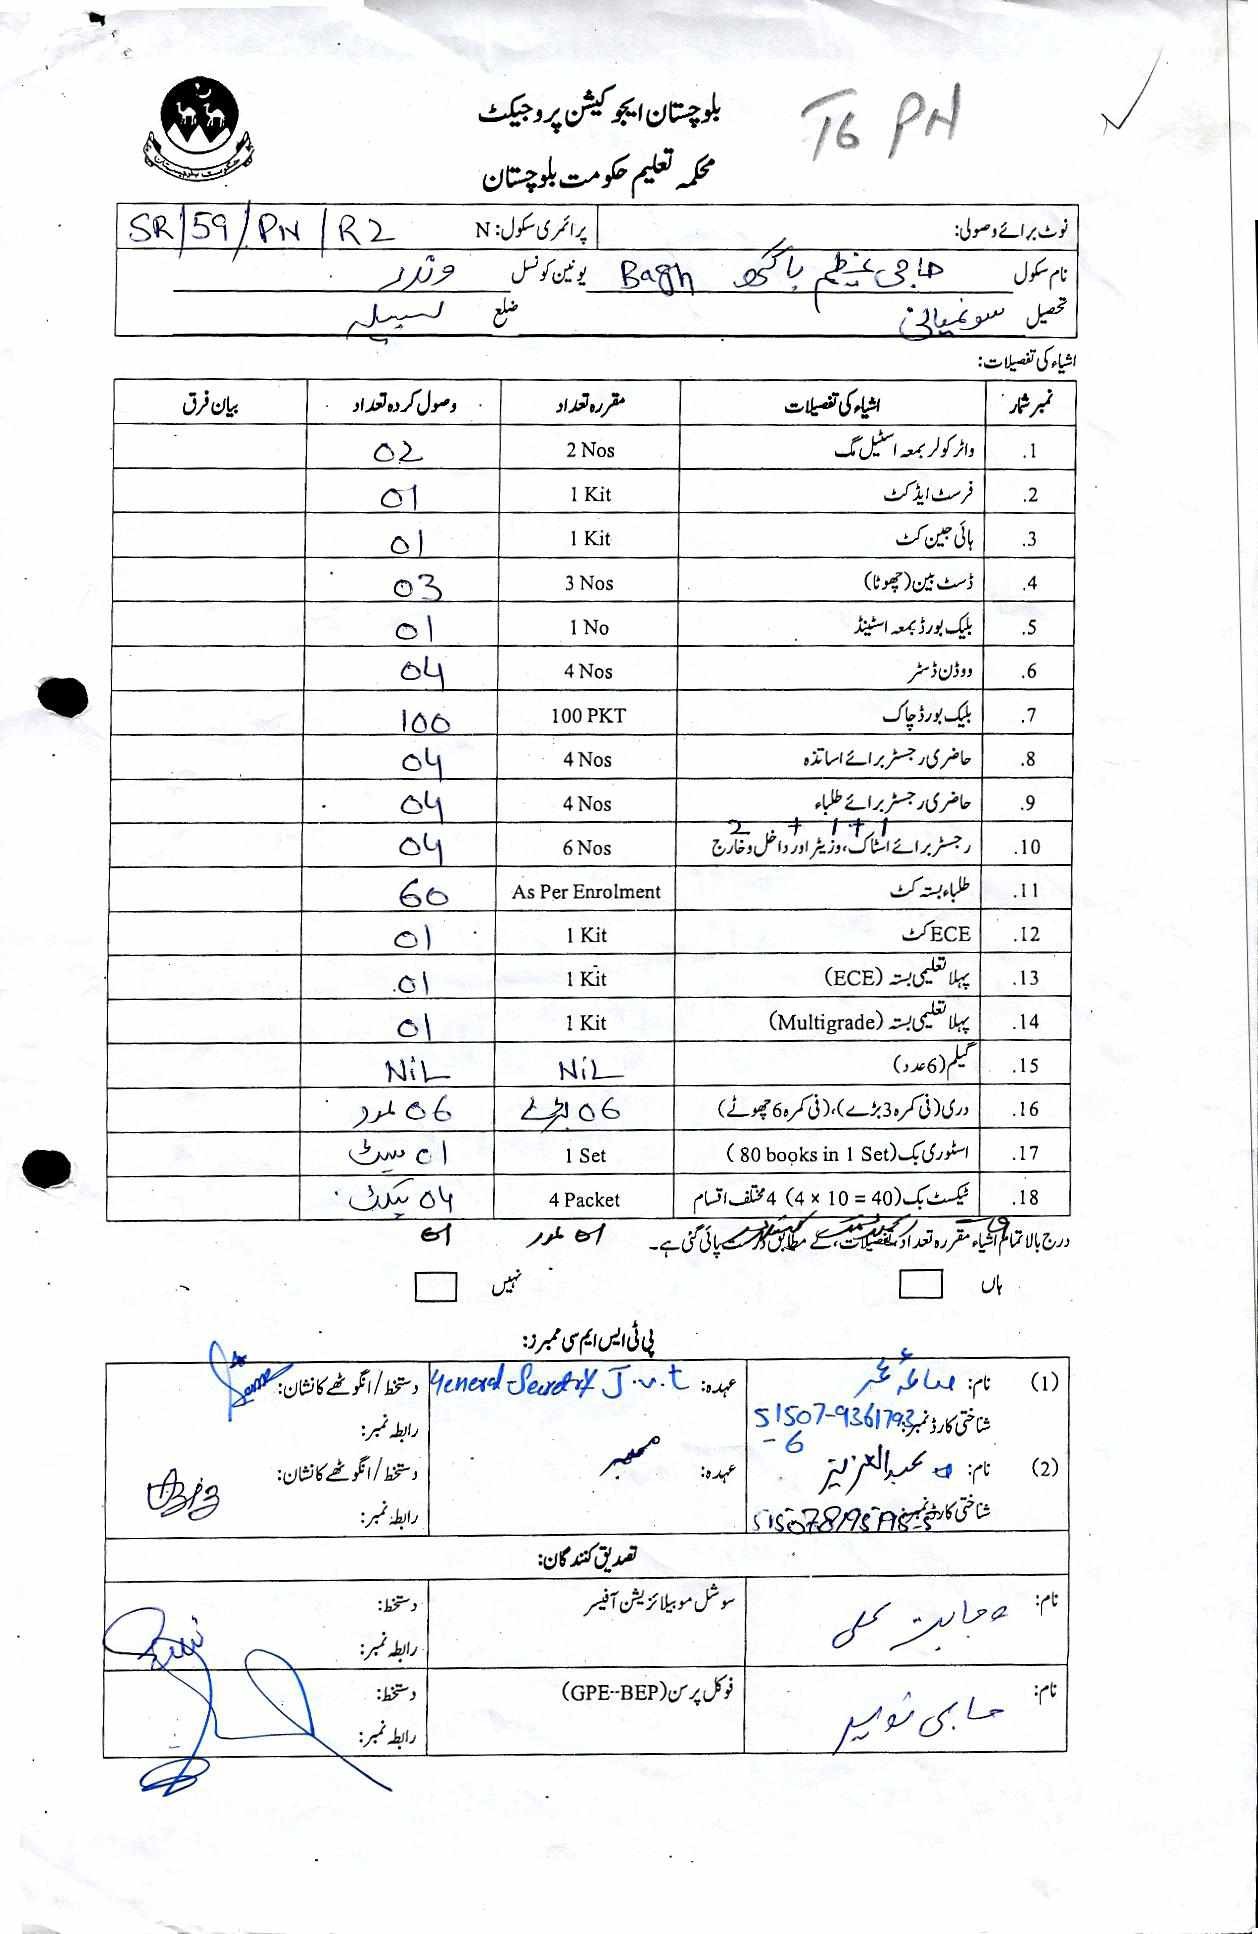 بلوچستان ایجوکیشن پروجیکٹ
T6 PN
محکمہ تعلیم حکومت بلوچستان
نوٹ برائے وصولی: پرائمری سکول: N SR/59/PN/R2
نام سکول حاجی عظیم باگھ Bagh یونین کونسل وندر
تحصیل سونمیانی ضلع لسبیلہ
اشیاء کی تفصیلات:
نمبر شمار اشیاء کی تفصیلات مقررہ تعداد وصول کردہ تعداد بیان فرق
1. واٹر کولر بمعہ اسٹیل مگ 2 Nos 02
2. فرسٹ ایڈ کٹ 1 Kit 01
3. ہائی جین کٹ 1 Kit 01
4. ڈسٹ بین (چھوٹا) 3 Nos 03
5. بلیک بورڈ بمعہ اسٹینڈ 1 No 01
6. ووڈن ڈسٹر 4 Nos 04
7. بلیک بورڈ چاک 100 PKT 100
8. حاضری رجسٹر برائے اساتذہ 4 Nos 04
9. حاضری رجسٹر برائے طلباء 4 Nos 04
2 + 1 + 1
10. رجسٹر برائے اسٹاک، وزیٹر اور داخل و خارج 6 Nos 04
11. طلباء بستہ کٹ As Per Enrolment 60
12. ECE کٹ 1 Kit 01
13. پہلا تعلیمی بستہ (ECE) 1 Kit 01
14. پہلا تعلیمی بستہ (Multigrade) 1 Kit 01
15. گیلم (6 عدد) NiL NiL
16. دری (فی کمرہ 3 بڑے)، (فی کمرہ 6 چھوٹے) 06 بڑے 06 عدد
17. اسٹوری بک (80 books in 1 Set) 1 Set 01 سیٹ
18. ٹیکسٹ بک (4 x 10 = 40) 4 مختلف اقسام 4 Packet 04 پیکٹ
01 عدد 01
درج بالا تمام اشیاء مقررہ تعداد، تفصیلات، کے مطابق درست پائی گئی ہے۔
ہاں نہیں
پی ٹی ایس ایم سی ممبرز:
(1) نام: عہدہ: General Secretry J.v.t دستخط/انگوٹھے کا نشان:
شناختی کارڈ نمبر: 51507-9361793-6 رابطہ نمبر:
(2) نام: عبدالعزیز عہدہ: ممبر دستخط/انگوٹھے کا نشان:
شناختی کارڈ نمبر: رابطہ نمبر:
تصدیق کنندگان:
نام: سوشل موبیلائزیشن آفیسر دستخط:
رابطہ نمبر:
نام: حاجی فوکل پرسن (GPE--BEP) دستخط:
رابطہ نمبر: